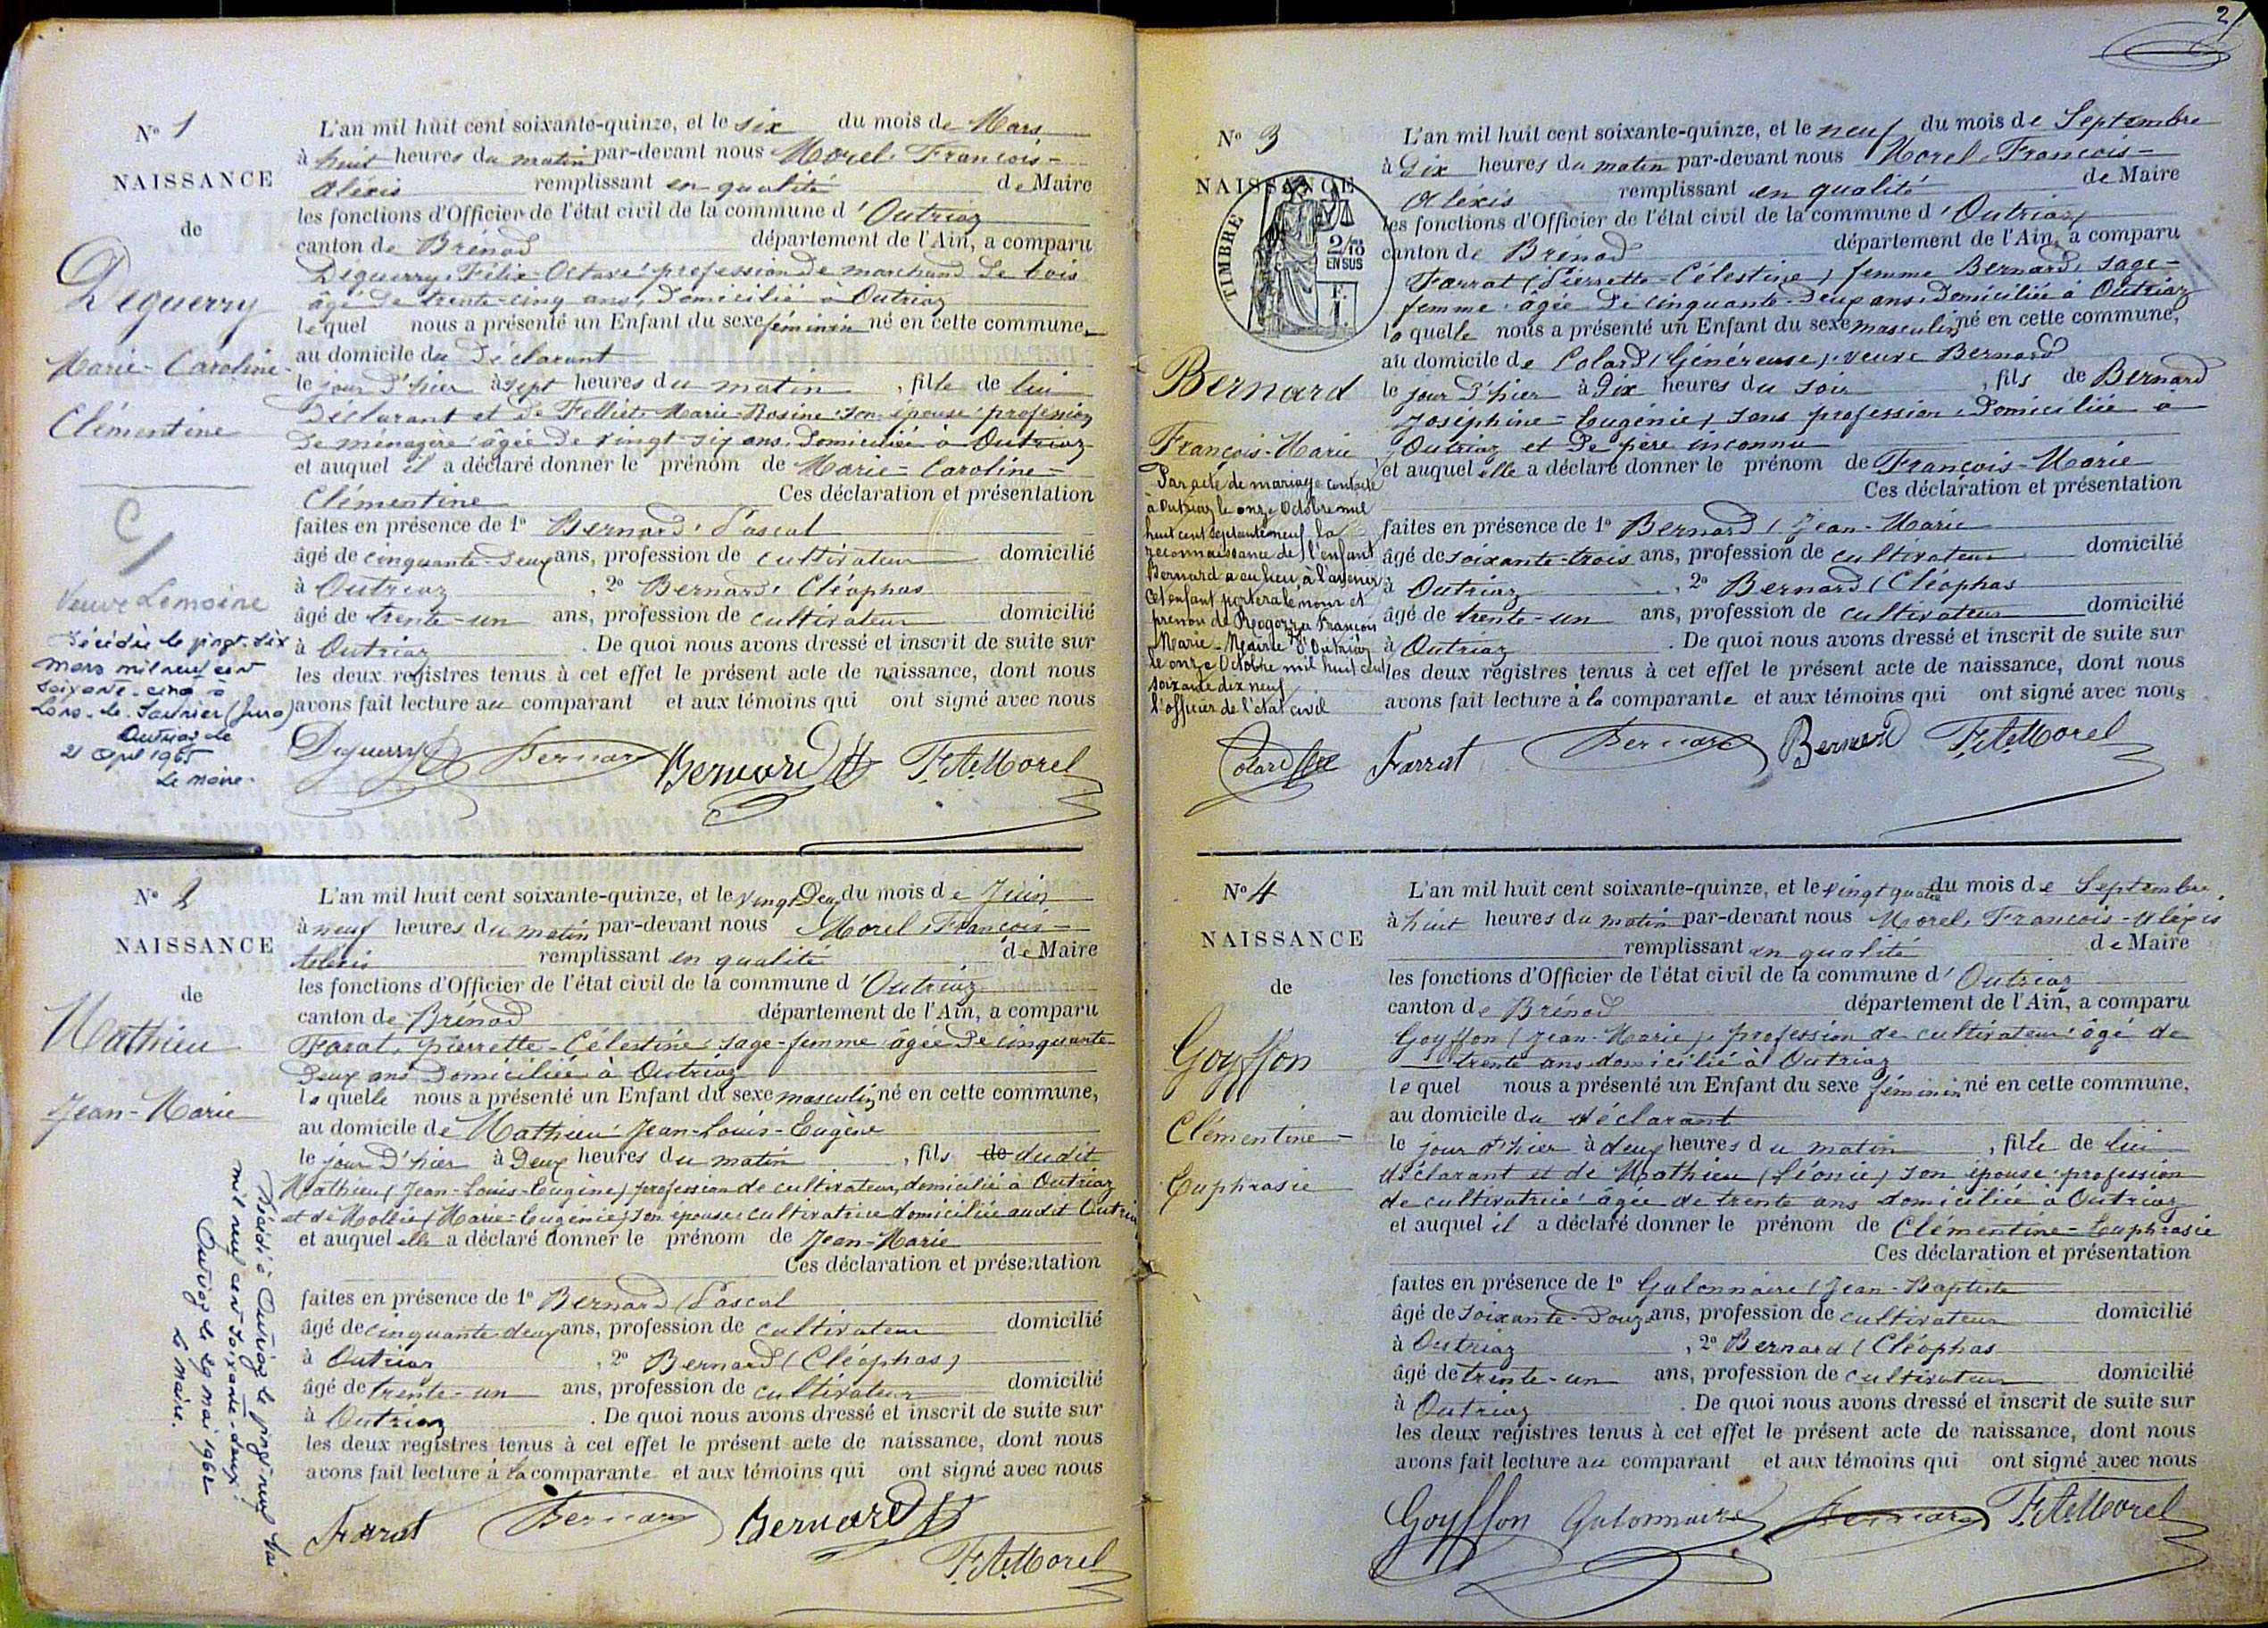 N° 1
NAISSANCE
de
Deguerry
Marie-Caroline-
Clémentine
C/
Veuve Lemoine
Décédée le vingt-six
mars mil neuf cent
soixante-cinq à
Lons-le-Saunier (Jura)
Outriaz le
21 Avril 1965
Le maire.
L'an mil huit cent soixante-quinze, et le six du mois de Mars
à huit heures du matin par-devant nous Morel, François-
Alexis remplissant en qualité de Maire
les fonctions d'Officier de l'état civil de la commune d'Outriaz
canton de Brénod département de l'Ain, a comparu
Deguerry, Félix-Octave, profession de marchand de bois
âgé de trente-cinq ans, domicilié à Outriaz
lequel nous a présenté un Enfant du sexe féminin né en cette commune,
au domicile du Déclarant
le jour d'hier à sept heures du matin, fille de lui
déclarant et de Marie-Rosine, son épouse, profession
de ménagère, âgée de vingt-six ans, domiciliée à Outriaz
et auquel il a déclaré donner le prénom de Marie=Caroline=
Clémentine Ces déclaration et présentation
faites en présence de 1° Bernard, Pascal
âgé de cinquante-deux ans, profession de cultivateur domicilié
à Outriaz, 2° Bernard, Cléophas
âgé de trente-un ans, profession de cultivateur domicilié
à Outriaz. De quoi nous avons dressé et inscrit de suite sur
les deux registres tenus à cet effet le présent acte de naissance, dont nous
avons fait lecture au comparant et aux témoins qui ont signé avec nous
Deguerry Bernard Bernard F. A. Morel
N° 2
NAISSANCE
de
Mathieu
Jean-Marie
Décédé à Outriaz le vingt-neuf Mai
mil neuf cent soixante-deux.
Outriaz le 29 mai 1962
Le maire.
L'an mil huit cent soixante-quinze, et le vingt Deux du mois de Juin
à neuf heures du matin par-devant nous Morel, François-
Alexis remplissant en qualité de Maire
les fonctions d'Officier de l'état civil de la commune d'Outriaz
canton de Brénod département de l'Ain, a comparu
Farat, Pierrette-Célestine, sage-femme âgée de cinquante-
deux ans domiciliée à Outriaz
laquelle nous a présenté un Enfant du sexe masculin né en cette commune,
au domicile de Mathieu Jean-Louis-Eugène
le jour d'hier à Deux heures du matin, fils de dudit
Mathieu (Jean-Louis-Eugène) profession de cultivateur, domicilié à Outriaz
et de Mollie (Marie-Eugénie) son épouse cultivatrice domiciliée audit Outriaz
et auquel elle a déclaré donner le prénom de Jean-Marie
Ces déclaration et présentation
faites en présence de 1° Bernard (Pascal
âgé de cinquante-deux ans, profession de cultivateur domicilié
à Outriaz, 2° Bernard (Cléophas)
âgé de trente-un ans, profession de cultivateur domicilié
à Outriaz. De quoi nous avons dressé et inscrit de suite sur
les deux registres tenus à cet effet le présent acte de naissance, dont nous
avons fait lecture à la comparante et aux témoins qui ont signé avec nous
Farat Bernard Bernard
F. A. Morel
2
N° 3
NAISSANCE
TIMBRE
2/10es
EN SUS
F.
Bernard
François-Marie
Par acte de mariage contracté
à Outriaz le onze Octobre mil
huit cent septante neuf la
reconnaissance de l'enfant
Bernard a eu lieu, à l'avenir
cet enfant portera le nom et
prénom de Rogozza François
Marie - Mairie d'Outriaz
le onze Octobre mil huit cent
soixante dix neuf
l'officier de l'état civil
L'an mil huit cent soixante-quinze, et le neuf du mois de Septembre
à Dix heures du matin par-devant nous Morel, François-
Alexis remplissant en qualité de Maire
les fonctions d'Officier de l'état civil de la commune d'Outriaz
canton de Brénod département de l'Ain, a comparu
Farrat (Pierrette-Célestine) femme Bernard, sage-
femme, âgée de cinquante-deux ans, domiciliée à Outriaz
laquelle nous a présenté un Enfant du sexe masculin né en cette commune,
au domicile de Colard (Généreuse), veuve Bernard
le jour d'hier à Dix heures du soir, fils de Bernard
Joséphine=Eugénie, sans profession, Domiciliée à
Outriaz et de père inconnu
et auquel elle a déclaré donner le prénom de François-Marie
Ces déclaration et présentation
faites en présence de 1° Bernard (Jean-Marie
âgé de soixante-trois ans, profession de cultivateur domicilié
à Outriaz, 2° Bernard (Cléophas
âgé de trente-un ans, profession de cultivateur domicilié
à Outriaz. De quoi nous avons dressé et inscrit de suite sur
les deux registres tenus à cet effet le présent acte de naissance, dont nous
avons fait lecture à la comparante et aux témoins qui ont signé avec nous
Colard Farrat Bernard Bernard F. A. Morel
N° 4
NAISSANCE
de
Goyffon
Clémentine-
Euphrasie
L'an mil huit cent soixante-quinze, et le vingt quatre du mois de Septembre
à huit heures du matin par-devant nous Morel, François-Alexis
remplissant en qualité de Maire
les fonctions d'Officier de l'état civil de la commune d'Outriaz
canton de Brénod département de l'Ain, a comparu
Goyffon (Jean-Marie), profession de cultivateur âgé de
trente ans domicilié à Outriaz
lequel nous a présenté un Enfant du sexe féminin né en cette commune,
au domicile du déclarant
le jour d'hier à deux heures du matin, fille de lui
déclarant et de Mathieu (Léonie) son épouse, profession
de cultivatrice âgée de trente ans domiciliée à Outriaz
et auquel il a déclaré donner le prénom de Clémentine-Euphrasie
Ces déclaration et présentation
faites en présence de 1° Galonnaire (Jean-Baptiste
âgé de soixante-Douze ans, profession de cultivateur domicilié
à Outriaz, 2° Bernard (Cléophas
âgé de trente-un ans, profession de cultivateur domicilié
à Outriaz. De quoi nous avons dressé et inscrit de suite sur
les deux registres tenus à cet effet le présent acte de naissance, dont nous
avons fait lecture au comparant et aux témoins qui ont signé avec nous
Goyffon Galonnaire Bernard F. A. Morel